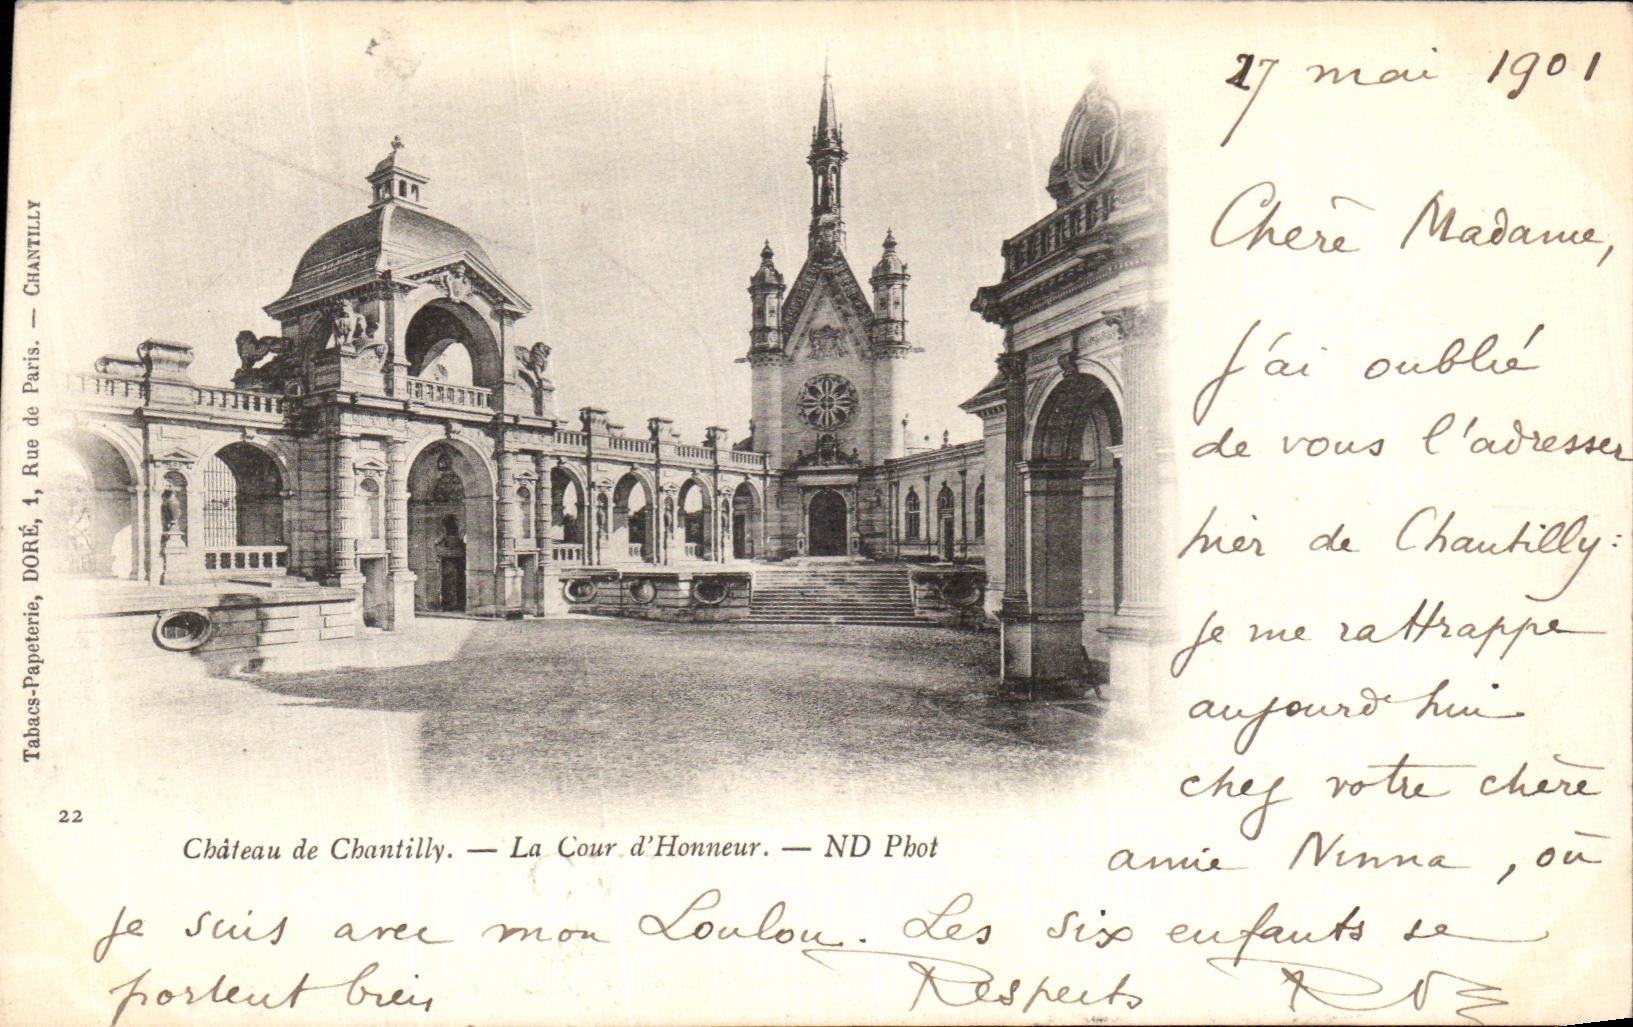 27 mai 1901
Chère Madame,
J'ai oublié
de vous l'adresser
hier de Chantilly :
je me rattrappe
aujourd'hui
chez votre chère
amie Ninna, où
je suis avec mon Loulou. Les six enfants se
portent bien
Respects
Tabacs-Papeterie, DORÉ, 1, Rue de Paris. — CHANTILLY
22
Château de Chantilly. — La Cour d'Honneur. — ND Phot